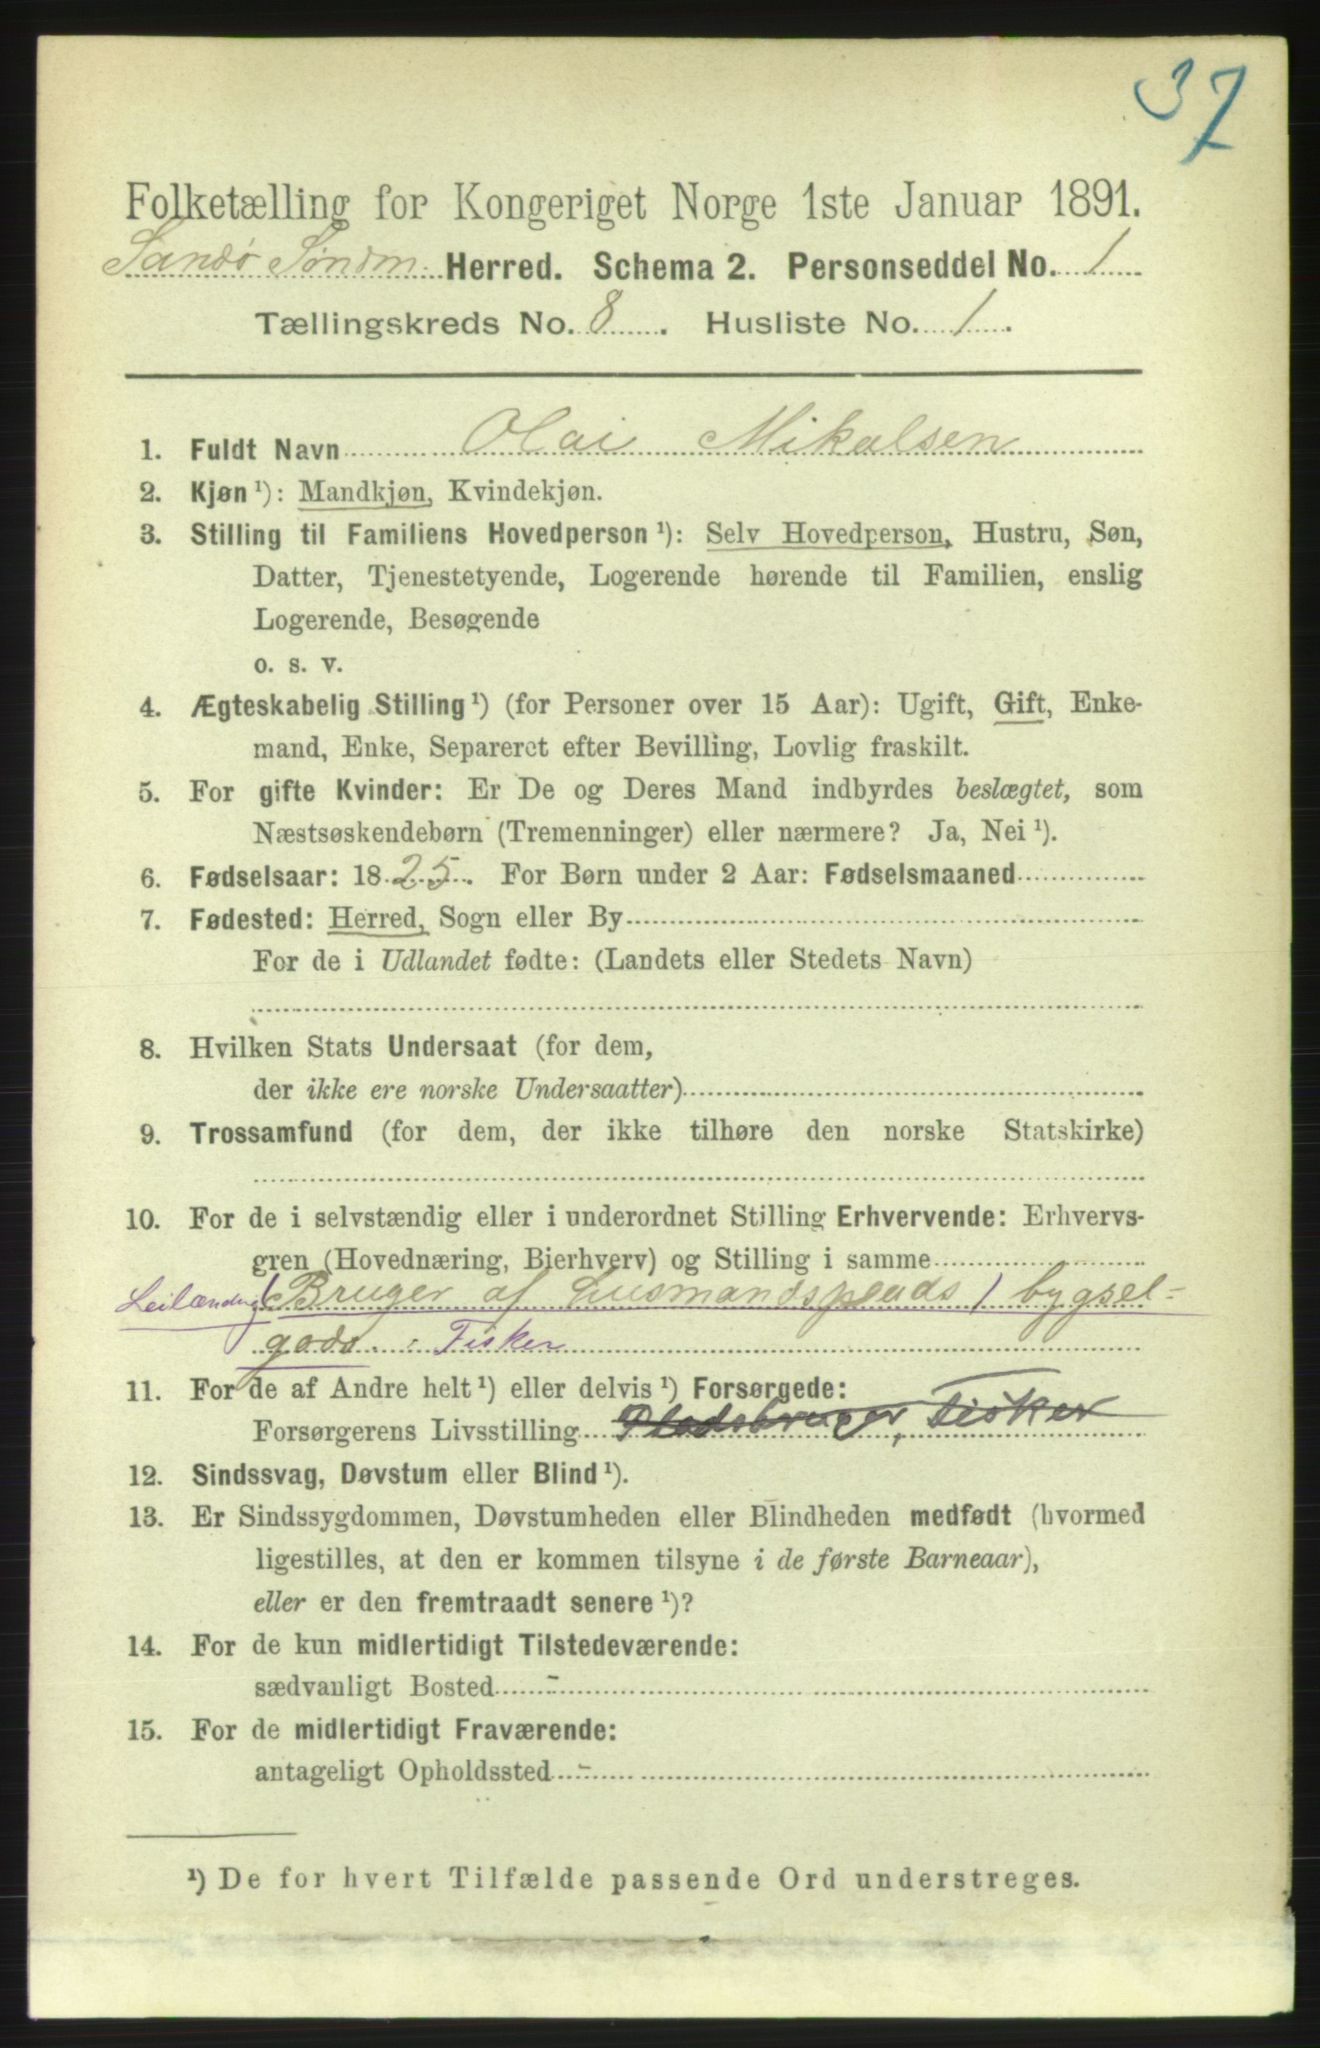 37
Folketælling for Kongeriget Norge 1ste Januar 1891.
Sandø Søndm. Herred. Schema 2. Personseddel No. 1
Tællingskreds No. 8. Husliste No. 1.
1. Fuldt Navn Olai Mikalsen
2. Kjøn ¹): Mandkjøn, Kvindekjøn.
3. Stilling til Familiens Hovedperson ¹): Selv Hovedperson, Hustru, Søn,
Datter, Tjenestetyende, Logerende hørende til Familien, enslig
Logerende, Besøgende
o. s. v.
4. Ægteskabelig Stilling ¹) (for Personer over 15 Aar): Ugift, Gift, Enke-
mand, Enke, Separeret efter Bevilling, Lovlig fraskilt.
5. For gifte Kvinder: Er De og Deres Mand indbyrdes beslægtet, som
Næstsøskendebørn (Tremenninger) eller nærmere? Ja, Nei ¹).
6. Fødselsaar: 1825. For Børn under 2 Aar: Fødselsmaaned
7. Fødested: Herred, Sogn eller By
For de i Udlandet fødte: (Landets eller Stedets Navn)
8. Hvilken Stats Undersaat (for dem,
der ikke ere norske Undersaatter)
9. Trossamfund (for dem, der ikke tilhøre den norske Statskirke)
10. For de i selvstændig eller i underordnet Stilling Erhvervende: Erhvervs-
gren (Hovednæring, Bierhverv) og Stilling i samme
Leilænding (Bruger af Husmandsplads) bygsel-
gods. Fisker
11. For de af Andre helt ¹) eller delvis ¹) Forsørgede:
Forsørgerens Livsstilling Pladsbruger, Fisker
12. Sindssvag, Døvstum eller Blind ¹).
13. Er Sindssygdommen, Døvstumheden eller Blindheden medfødt (hvormed
ligestilles, at den er kommen tilsyne i de første Barneaar),
eller er den fremtraadt senere ¹)?
14. For de kun midlertidigt Tilstedeværende:
sædvanligt Bosted -
15. For de midlertidigt Fraværende:
antageligt Opholdssted -
¹) De for hvert Tilfælde passende Ord understreges.